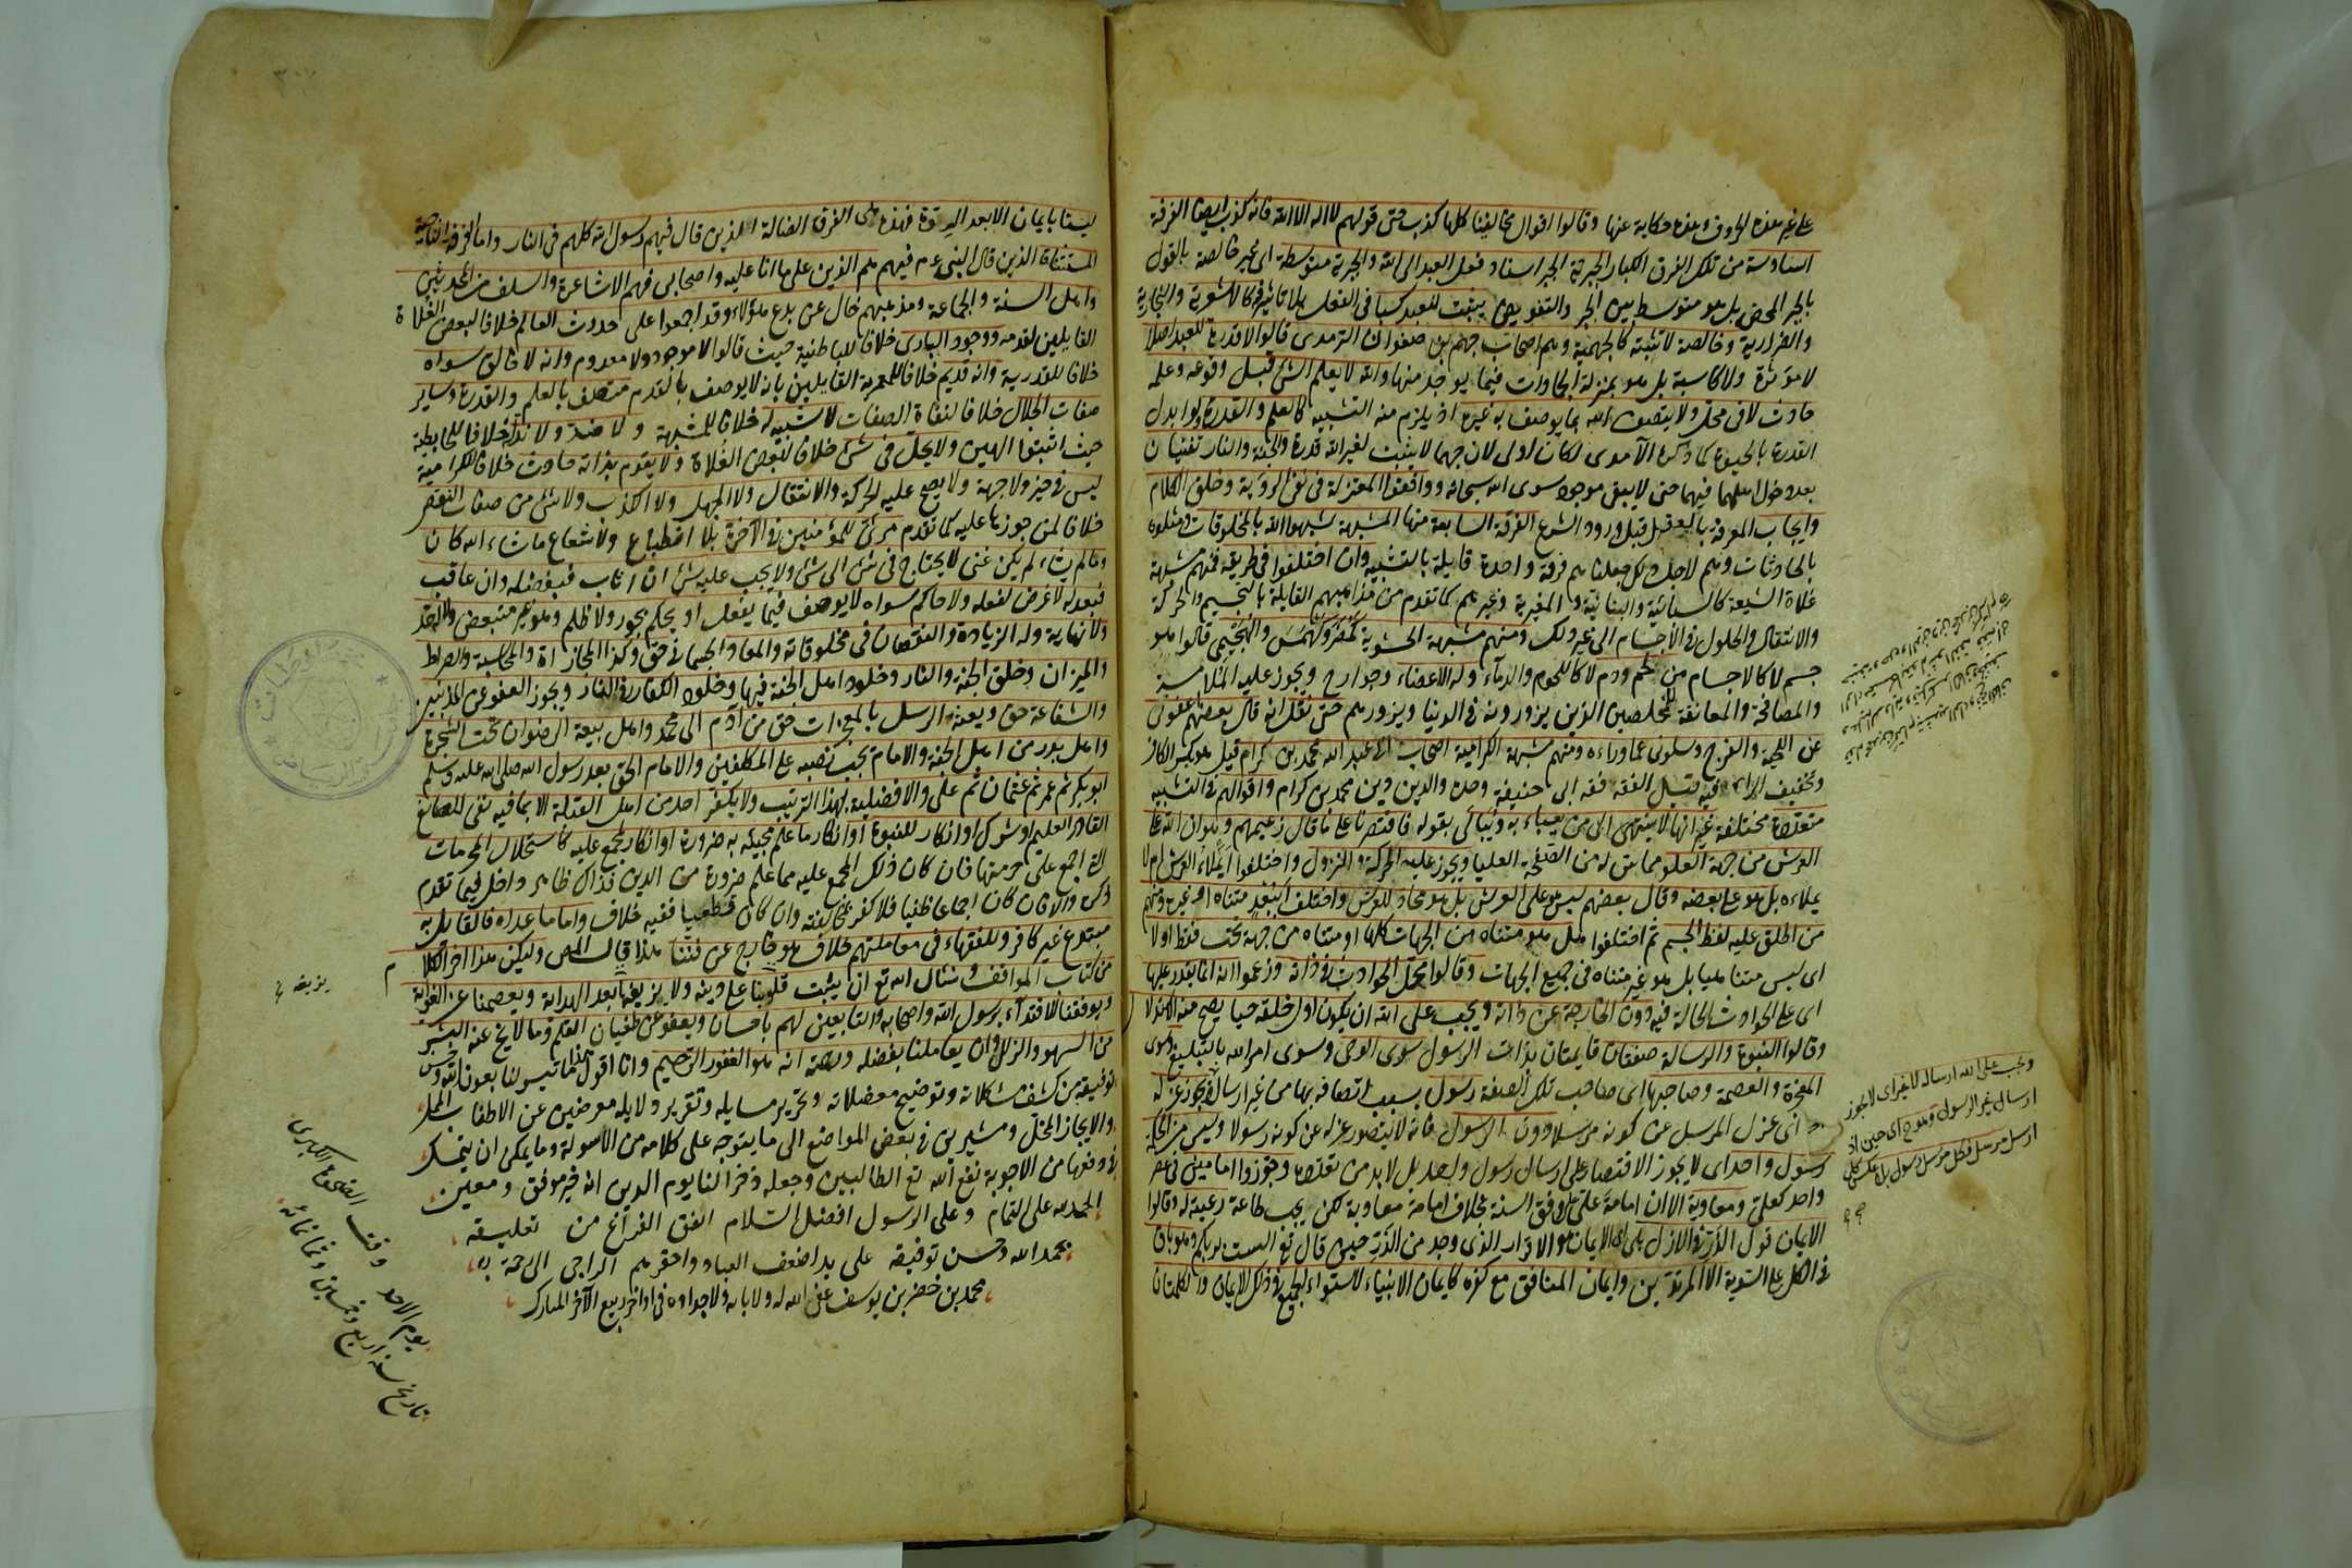 على غير هذه الحروف وهذه حكاية عنها وقالوا اقوال مخالفينا كلها كذب حتى قولهم لا اله الا الله فانه كذب ايضا الفرقة
السادسة من تلك الفرق الكبار الجبرية الجبر اسناد فعل العبد الى الله والجبرية متوسطة اى غير خالصة بالقول
بالجبر المحض بل هو متوسط بين الجبر والتفويض يثبت للعبد كسبا فى الفعل بلا تاثير فيه كالاشعرية والنجارية
والضرارية وخالصة لا تثبته كالجهمية وهم اصحاب جهم بن صفوان الترمدى قالوا لا قدرة للعبد اصلا
لا مؤثرة ولا كاسبة بل هو بمنزلة الجمادات فيما يوجد منها والله لا يعلم الشئ قبل وقوعه وعلمه
حادث لا فى محل ولا يتصف الله بما يوصف به غيره اذ يلزم منه التشبيه كالعلم والقدرة ولو ابدل
القدرة بالحيوة كما ذكره الآمدى لكان اولى لان جهما لا يثبت لغير الله قدرة والجنة والنار تفنيان
بعد دخول اهلهما فيهما حتى لا يبقى موجود سوى الله سبحانه ووافقوا المعتزلة فى نفى الرؤية وخلق الكلام
وايجاب المعرفة بالعقل قبل ورود الشرع الفرقة السابعة منها المشبهة شبهوا الله بالمخلوقات ومثلوه
بالحادثات وهم لاجل ذلك جعلناهم فرقة واحدة قايلة بالتشبيه وان اختلفوا فى طريقه فمنهم مشبهة
غلاة الشيعة كالسبائية والبنانية والمغيرية وغيرهم كما تقدم من مذاهبهم القايلة بالتجسيم والحركة
والانتقال والحلول فى الاجسام الى غير ذلك ومنهم مشبهة الحشوية كمضر وكهمس والهجيمى قالوا هو
جسم لا كالاجسام من لحم ودم لا كاللحوم والدماء وله الاعضاء وجوارح ويجوز عليه الملامسة
والمصافحة والمعانقة للمخلصين الذين يزورونه فى الدنيا ويزورهم حتى نقل انه قال بعضهم اعفونى
عن اللحية والفرج وسلونى عما وراءه ومنهم مشبهة الكرامية اصحاب ابى عبد الله محمد بن كرام قيل هو بكسر الكاف
وتخفيف الراء وفيه قيل الفقه فقه ابى حنيفة وحده والدين دين محمد بن كرام واقوالهم فى التشبيه
متعددة مختلفة غير انها لا ينتهى الى من يعباء به ويبالى بقوله فاقتصرنا على ما قال زعيمهم وهو ان الله على
العرش من جهة العلو مماس له من الصفحة العليا ويجوز عليه الحركة والنزول واختلفوا ايملاء العرش ام لا
يملاءه بل هو على بعضه وقال بعضهم ليس هو على العرش بل هو محاذ للعرش واختلف ابعد متناه او غيره ومنهم
من اطلق عليه لفظ الجسم ثم اختلفوا هل هو متناه من الجهات كلها او متناه من جهة تحت فقط او لا
اى ليس متناهيا بل هو غير متناه فى جميع الجهات وقالوا تحل الحوادث فى ذاته وزعموا انه انما يقدر عليها
اى على الحوادث الحالة فيه دون الخارجة عن ذاته ويجب على الله ان يكون اول خلقه حيا يصح منه الاستدلال
وقالوا النبوة والرسالة صفتان قايمتان بذات الرسول سوى الوحى وسوى امر الله بالتبليغ وسوى
المعجزة والعصمة وصاحبها اى صاحب تلك الصفة رسول بسبب اتصافه بها من غير ارسال ويجوز عزله
اى عزل المرسل عن كونه مرسلا دون الرسول فانه لا يتصور عزله عن كونه رسولا وليس من الحكمة
رسول واحد اى لا يجوز الاقتصار على ارسال رسول واحد بل لابد من تعدده وجوزوا امامين فى عصر
واحد كعلى ومعاوية الا ان امامة على على وفق السنة بخلاف امامة معاوية لكن يجب طاعة رعيته له وقالوا
الايمان قول الذر فى الازل بلى اى الايمان هو الاقرار الذى وجد من الذر حين قال تع الست بربكم وهو باق
فى الكل على السوية الا المرتدين وايمان المنافق مع كفره كايمان الانبياء لاستواء الجميع فى ذلك الايمان والكلمتان
ويجب على الله ارساله لا غير اى لا يجوز
ارسال غير الرسول وهو ح اى حين اذ
ارسل مرسل فكل مرسل رسول بلا عكس كلى
ليستا بايمان الا بعد الردة فهذه هى الفرق الضالة الذين قال فيهم رسول الله كلهم فى النار واما الفرقة الناجية
المستثناة الذين قال النبى عم فيهم هم الذين على ما انا عليه واصحابى فهم الاشاعرة والسلف من المحدثين
واهل السنة والجماعة ومذهبهم خال عن بدع هؤلاء وقد اجمعوا على حدوث العالم خلافا لبعض الغلاة
القايلين بقدمه ووجود البارى خلافا للباطنية حيث قالوا لا موجود ولا معدوم وانه لا خالق سواه
خلافا للقدرية وانه قديم خلافا للمعمرية القايلين بانه لا يوصف بالقدم متصف بالعلم والقدرة وساير
صفات الجلال خلافا لنفاة الصفات لا شبيه له خلافا للمشبهة ولا ضد ولا ند له خلافا للحابطية
حيث اثبتوا الهين ولا يحل فى شئ خلافا لبعض الغلاة ولا يقوم بذاته حادث خلافا للكرامية
ليس فى حيز ولا جهة ولا يصح عليه الحركة والانتقال ولا الجهل ولا الكذب ولا شئ من صفات النقص
خلافا لمن جوزها عليه كما تقدم مرئى للمؤمنين فى الآخرة بلا انطباع ولا شعاع ما شاء الله كان
وما لم يشاء لم يكن غنى لا يحتاج فى شئ الى شئ ولا يجب عليه شئ ان اثاب فبفضله وان عاقب
فبعدله لا غرض لفعله ولا حاكم سواه لا يوصف فيما يفعل او يحكم بجور ولا ظلم وهو غير متبعض ولا له حد
ولا نهاية وله الزيادة والنقصان فى مخلوقاته والمعاد الجسمانى حق وكذا المجازاة والمحاسبة والصراط
والميزان وخلق الجنة والنار وخلود اهل الجنة فيها وخلود الكفار فى النار ويجوز العفو عن المذنبين
والشفاعة حق وبعثة الرسل بالمعجزات حق من آدم الى محمد واهل بيعة الرضوان تحت الشجرة
واهل بدر من اهل الجنة والامام يجب نصبه على المكلفين والامام الحق بعد رسول الله صلى الله عليه وسلم
ابو بكر ثم عمر ثم عثمان ثم على والافضلية بهذا الترتيب ولا يكفر احد من اهل القبلة الا بما فيه نفى للصانع
القادر العليم او شرك او انكار للنبوة او انكار ما علم مجيئه به ضرورة او انكار لمجمع عليه كاستحلال المحرمات
التى اجمع على حرمتها فان كان ذلك المجمع عليه مما علم ضرورة من الدين فذاك ظاهر داخل فيما تقدم
ذكره والا فان كان اجماعا ظنيا فلا كفر بمخالفته وان كان قطعيا ففيه خلاف واما ما عداه فالقايل به
مبتدع غير كافر وللفقهاء فى معاملتهم خلاف هو خارج عن فننا هذا قال المص وليكن هذا آخر الكلام
من كتاب المواقف ونسئال الله تع ان يثبت قلوبنا على دينه ولا يزيغها بعد الهداية ويعصمنا عن الغواية
ويوفقنا للاقتداء برسول الله واصحابه والتابعين لهم باحسان ويعفو عن طغيان القلم وما لا يخ عنه البشر
من السهو والزلل وان يعاملنا بفضله ورحمته انه هو الغفور الرحيم وانا اقول هذا ما تيسر لنا بعون الله وحسن
توفيقه من كشف مشكلاته وتوضيح معضلاته وتحرير مسايله وتقرير دلايله معرضين عن الاطناب الممل
والايجاز المخل ومشيرين فى بعض المواضع الى ما يتوجه على كلامه من الاسولة وما يمكن ان يتمسك
فى دفعها من الاجوبة نفع الله تع الطالبين وجعله ذخرا لنا يوم الدين انه خير موفق ومعين
الحمد لله على التمام وعلى الرسول افضل السلام اتفق الفراغ من تعليقه
بحمد الله وحسن توفيقه على يد اضعف العباد واحقرهم الراجى الى رحمة ربه
محمد بن خضر بن يوسف عفى الله له ولابائه ولاجداده فى اواخر ربيع الآخر المبارك
يوم الاحد وقت الضحوة الكبرى
تاريخ سنة اربع وخمسين وثمانمائة